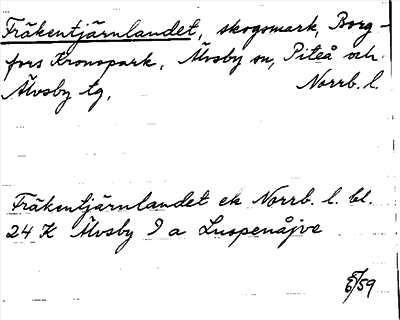 Fräkentjärnlandet, skogsmark, Borg-
fors Kronopark, Älvsby sn, Piteå och
Älvsby tg, Norrb. l.
Fräkentjärnlandet ek Norrb. l. bl.
24 K Älvsby 9 a Luspenåjve
E/59